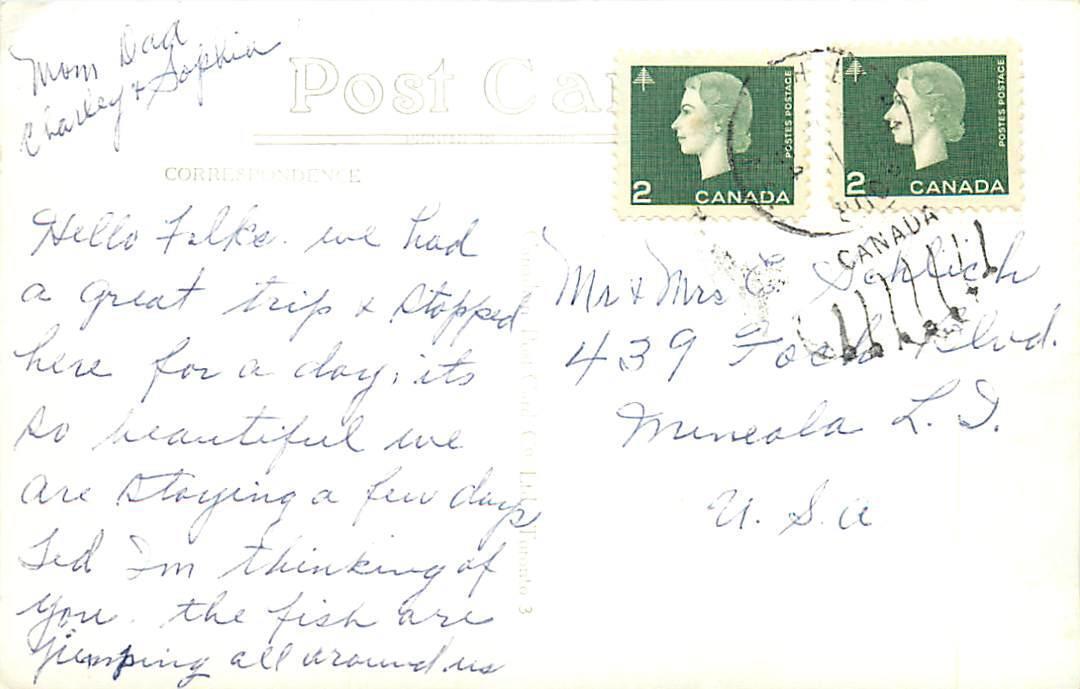 Mom Dad
Charley & Sophia
Post Car
CORRESPONDENCE
Hello Folks. we had
a great trip & stopped
here for a day, its
so beautiful we
are staying a few days
Ted I'm thinking of
you. the fish are
jumping all around us
2 CANADA
POSTES POSTAGE
2 CANADA
POSTES POSTAGE
CANADA
Mr & Mrs Schlich
439 Foch Blvd.
Mineola L. I.
U. S. A
Toronto 3